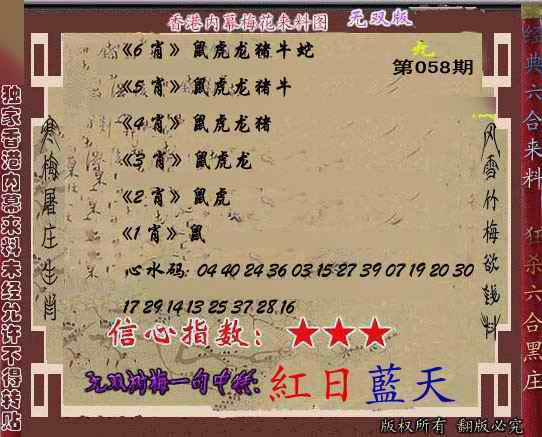 香港内幕梅花来料图 无双版
第058期
《6肖》鼠虎龙猪牛蛇
《5肖》鼠虎龙猪牛
《4肖》鼠虎龙猪
《3肖》鼠虎龙
《2肖》鼠虎
《1肖》鼠
心水码: 04 40 24 36 03 15 27 39 07 19 20 30
17 29 14 13 25 37 28 16
信心指数: ★★★
无双 梅一句中特: 紅日藍天
版权所有 翻版必究
独家香港内幕来料未经允许不得转贴
寒梅屠庄生肖
风雪竹梅欲钱料
经典六合来料 狂杀六合黑庄